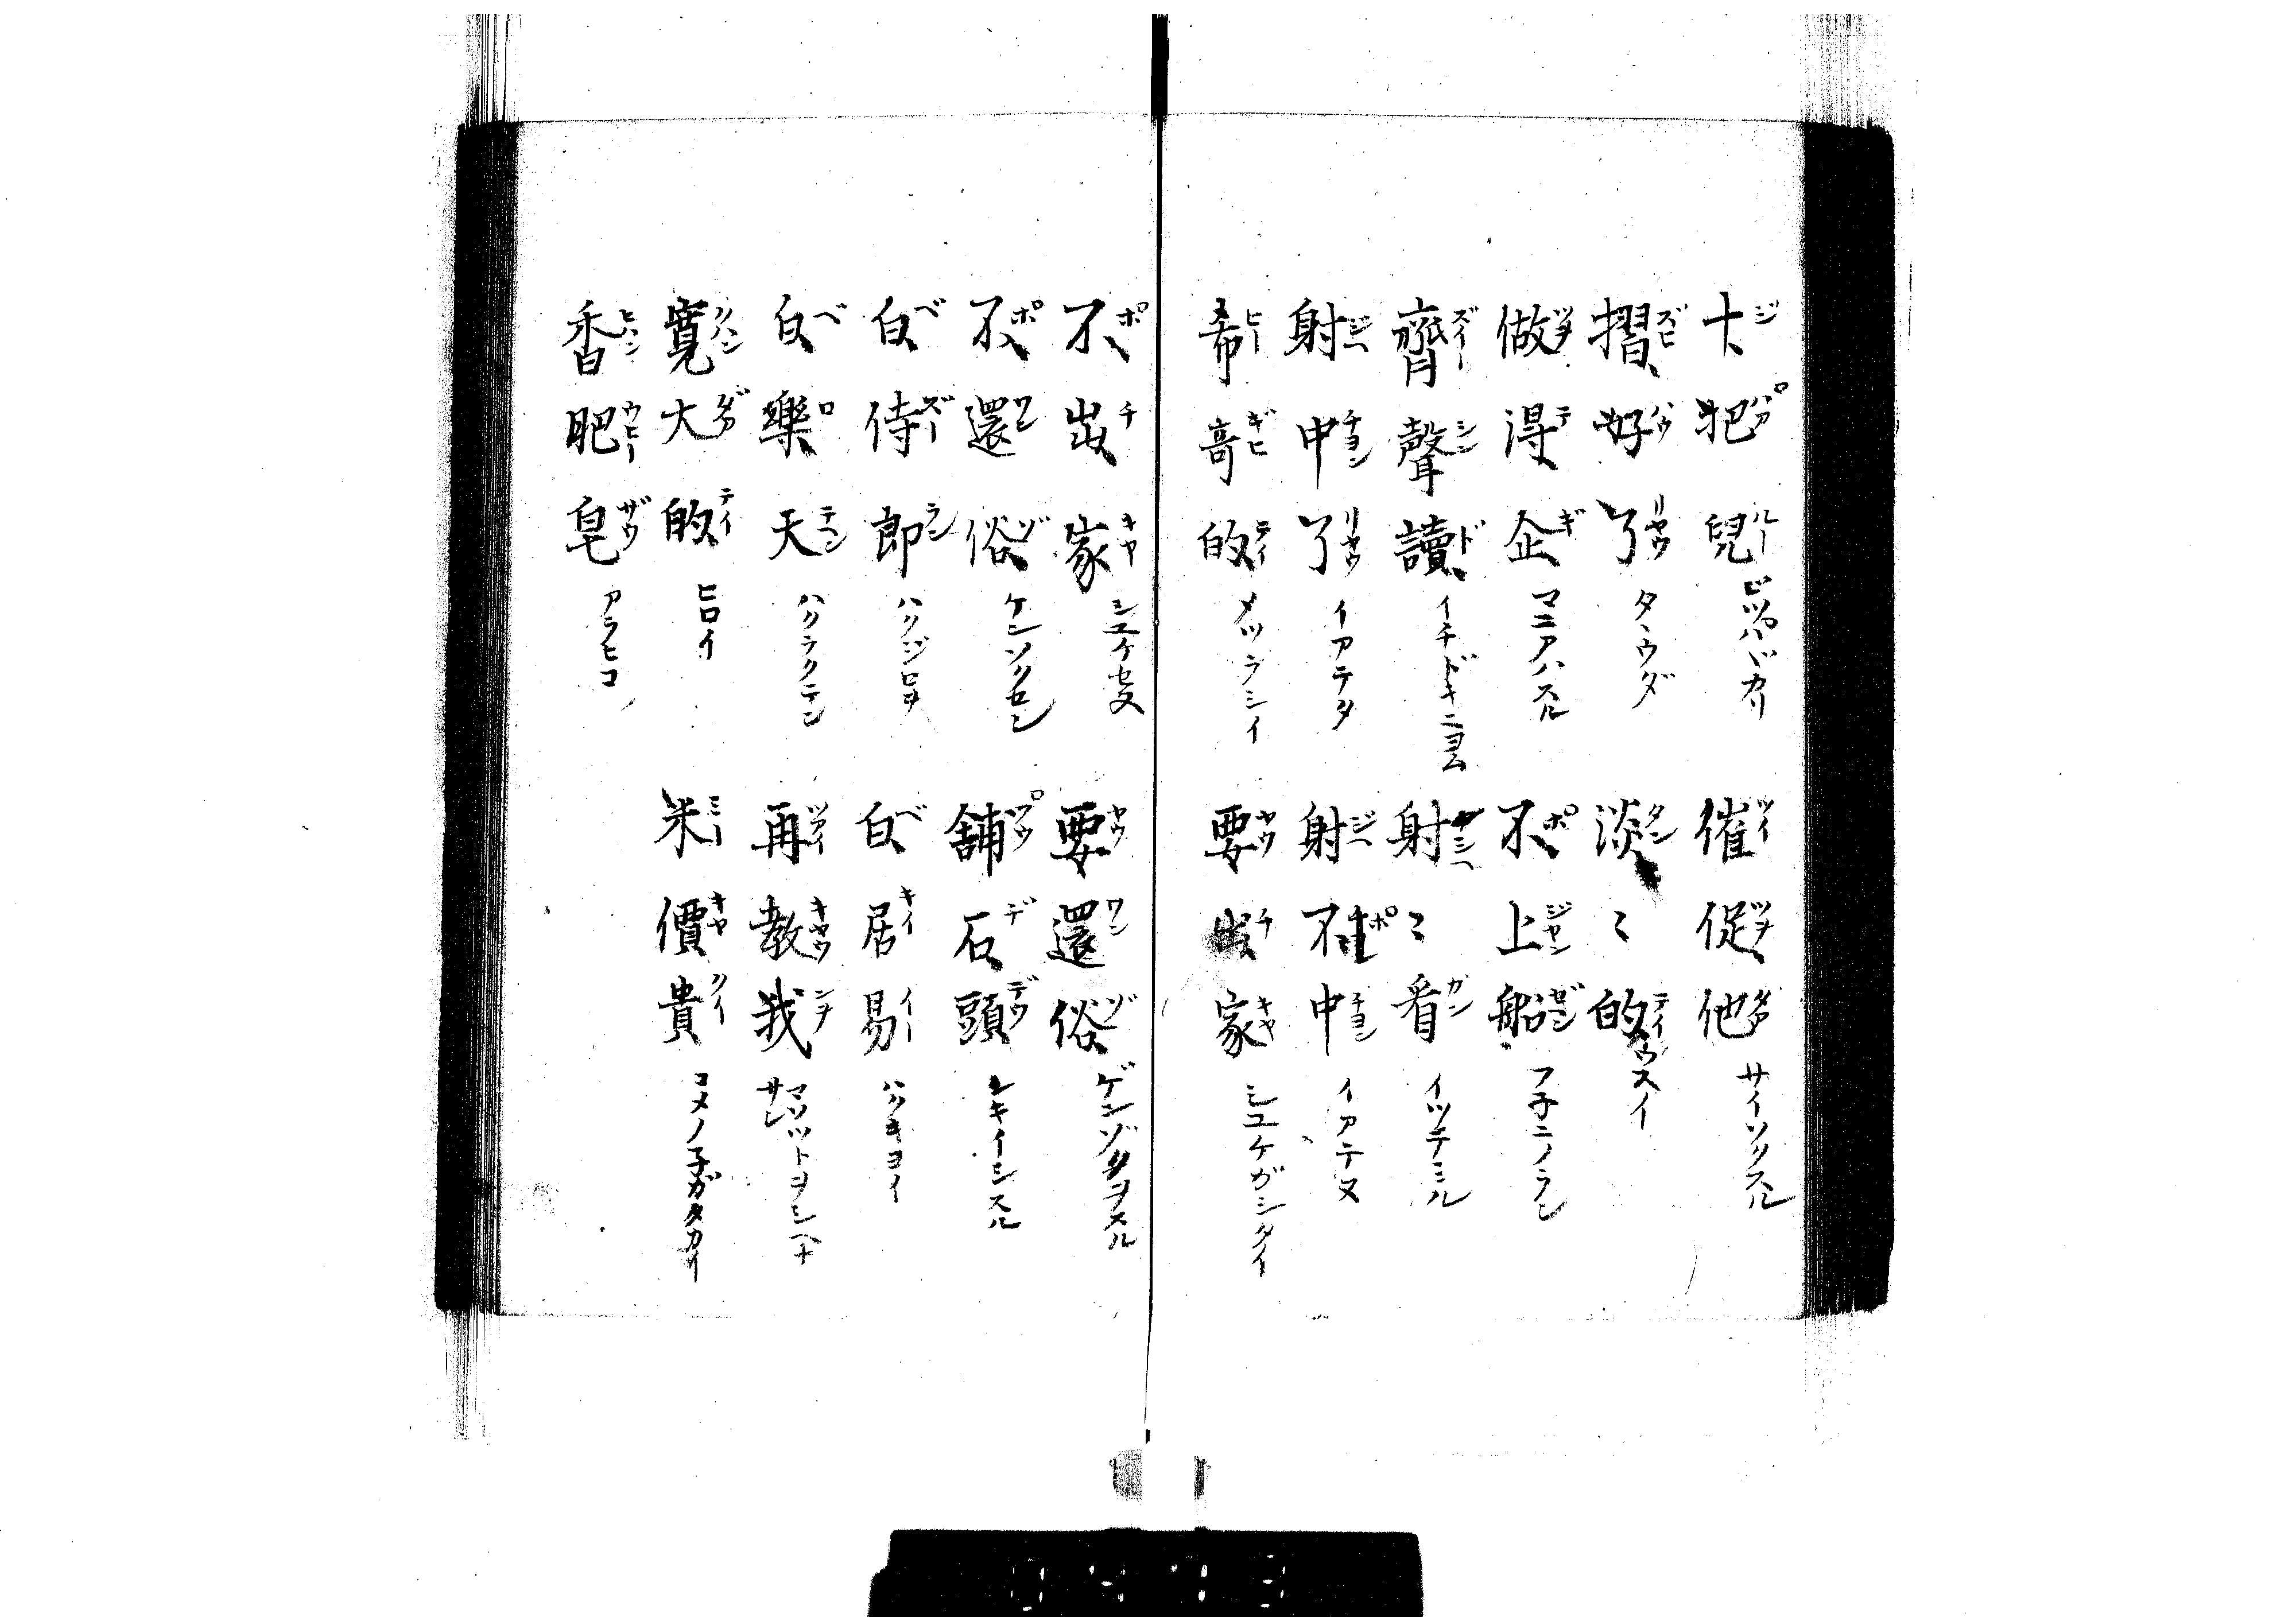 十把兒 ジ パア ルー ジツパバカリ
催促他 ツイ ツヲ タア サイソクスル
摺好了 ハウ リヤウ タヽウダ
淡〻的 タン テイ ウスイ
做得企 ツヲ テ ギ マニアハスル
不上船 ポ ジヤン ヂエン フ子ニノラン
齊聲讀 ズイー シン ド イチドキニヨム
射〻看 ジー カン イツテミル
射中了 ジー チヨン リヤウ イアテタ
射不中 ジー ポ チヨン イアテヌ
希竒的 ヒー ギヒ テイ メツラシイ
要出家 ヤウ チ キヤ シユケガシタイ
不出家 ポ チ キヤ シユケセヌ
要還俗 ヤウ ワン ヅ ゲンゾクヲスル
不還俗 ポ ワン ヅ ケンソクセン
舗石頭 プウ ヂ デウ シキイシスル
白侍郎 ベ ズー ラン ハクジロヲ
白居易 ベ キイ イー ハクキヨイ
白樂天 ベ ロ テエン ハクラクテン
再教我 ツアイ キヤウ ンヲ マソツトヲシヘナサレ
寛大的 クハン ダア テイ ヒロイ
米價貴 ミー キヤ クイ コメノ子ガタカイ
香肥皂 ヒヤン ウヒー ザウ アラヒコ